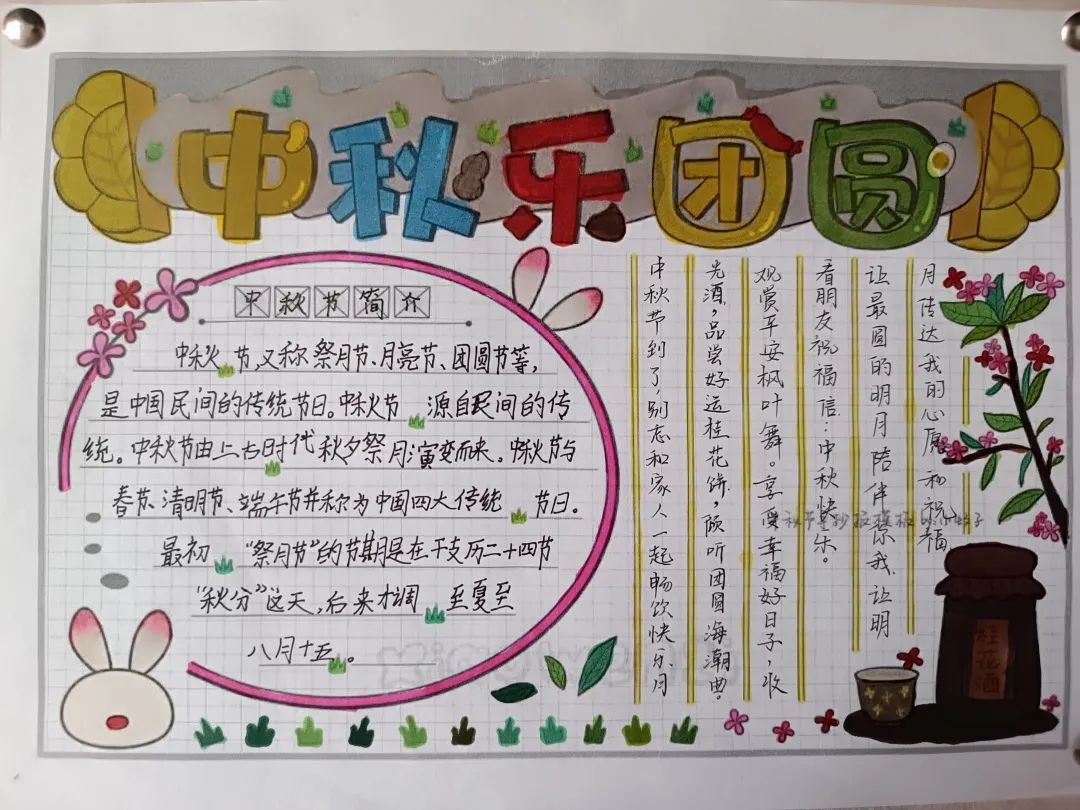 中秋乐团圆
中秋节简介
中秋节,又称祭月节、月亮节、团圆节等,
是中国民间的传统节日。中秋节 源自民间的传
统。中秋节由上古时代秋夕祭月演变而来。中秋节与
春节、清明节、端午节并称为中国四大传统 节日。
最初 “祭月节”的节期是在干支历二十四节
“秋分”这天,后来才调 至夏至
八月十五 。
中秋节到了,别忘和家人一起畅饮快乐月
光酒,品尝好运桂花饼,倾听团圆海潮曲。
观赏平安枫叶舞。享受幸福好日子,收
看朋友祝福信:中秋快乐。
让最圆的明月陪伴你我,让明
月传达我的心愿和祝福
桂花酒